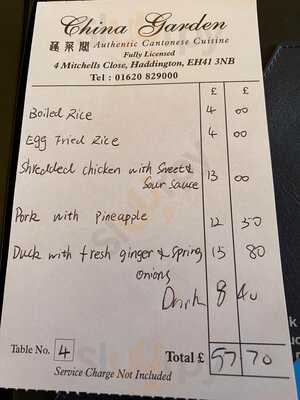 China Garden
蓬萊閣 Authentic Cantonese Cuisine
Fully Licensed
4 Mitchells Close, Haddington, EH41 3NB
Tel : 01620 829000
£ £
Boiled Rice 4 00
Egg Fried Rice 4 00
Shredded chicken with Sweet &
Sour Sauce 13 00
Pork with Pineapple 12 50
Duck with fresh ginger & Spring 15 80
onions
Drink 8 40
Table No. 4 Total £ 57 70
Service Charge Not Included